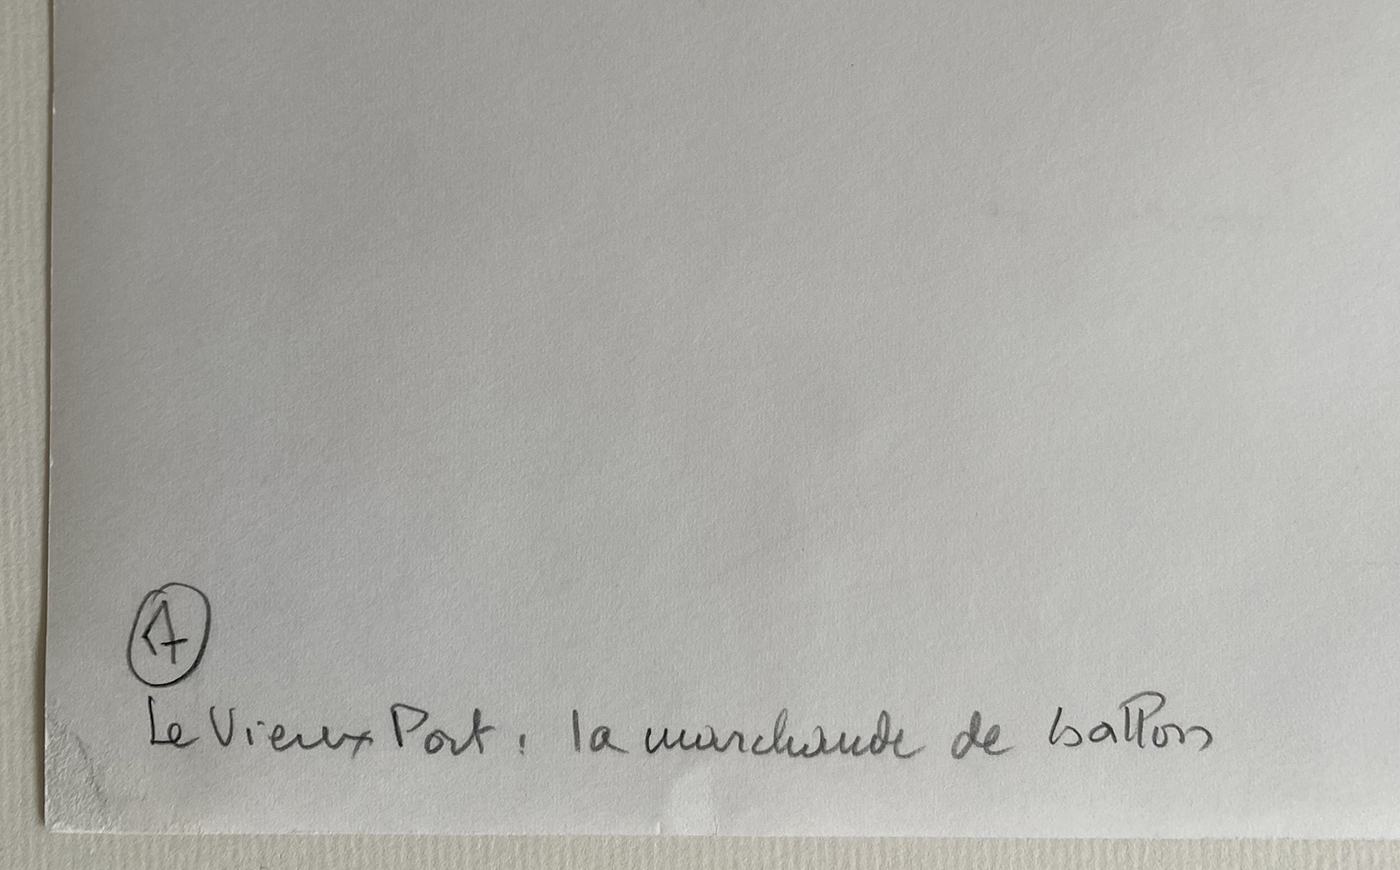 4
Le Vieux Port : la marchande de ballons